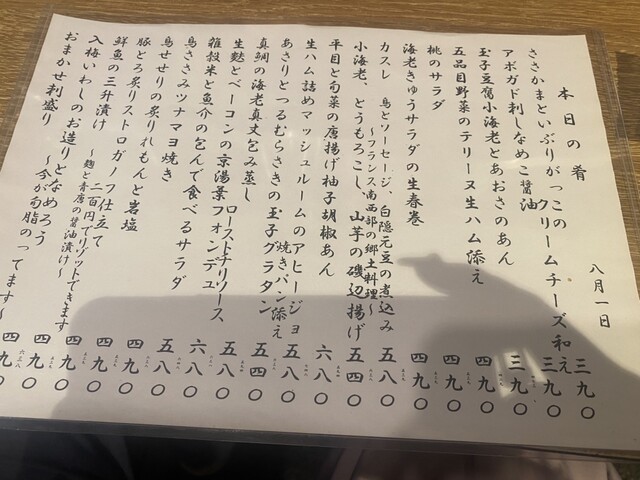 本日の肴
八月一日
ささかまといぶりがっこの
クリームチーズ和え 三九〇
アボガド刺しなめこ醤油 三九〇
玉子豆腐小海老とあおさのあん 三九〇
五品目野菜のテリーヌ生ハム添え 四九〇
桃のサラダ 四九〇
海老きゅうサラダの生春巻 四九〇
カスレ 鳥とソーセージ、白隠元豆の煮込み 五八〇
〜フランス南西部の郷土料理〜
小海老、とうもろこし、山芋の磯辺揚げ 五四〇
平目と旬菜の唐揚げ柚子胡椒あん 六八〇
生ハム詰めマッシュルームのアヒージョ 五八〇
焼きパン添え
あさりとつるむらさきの玉子グラタン 五四〇
真鯛の海老真丈包み蒸し 五八〇
ローストチリソース
生麩とベーコンの京湯葉フォンデュ 五八〇
雑穀米と魚介の包んで食べるサラダ 六八〇
鳥ささみツナマヨ焼き 五八〇
鳥せせりの炙りれもんと岩塩 四九〇
豚とろ炙りストロガノフ仕立て 四九〇
二百円でリゾットできます
鮮魚の三升漬け 〜麹と青唐の醤油漬け〜 四九〇
入梅いわしのお造りとなめろう 四九〇
〜今が旬脂のってます〜
おまかせ刺盛り